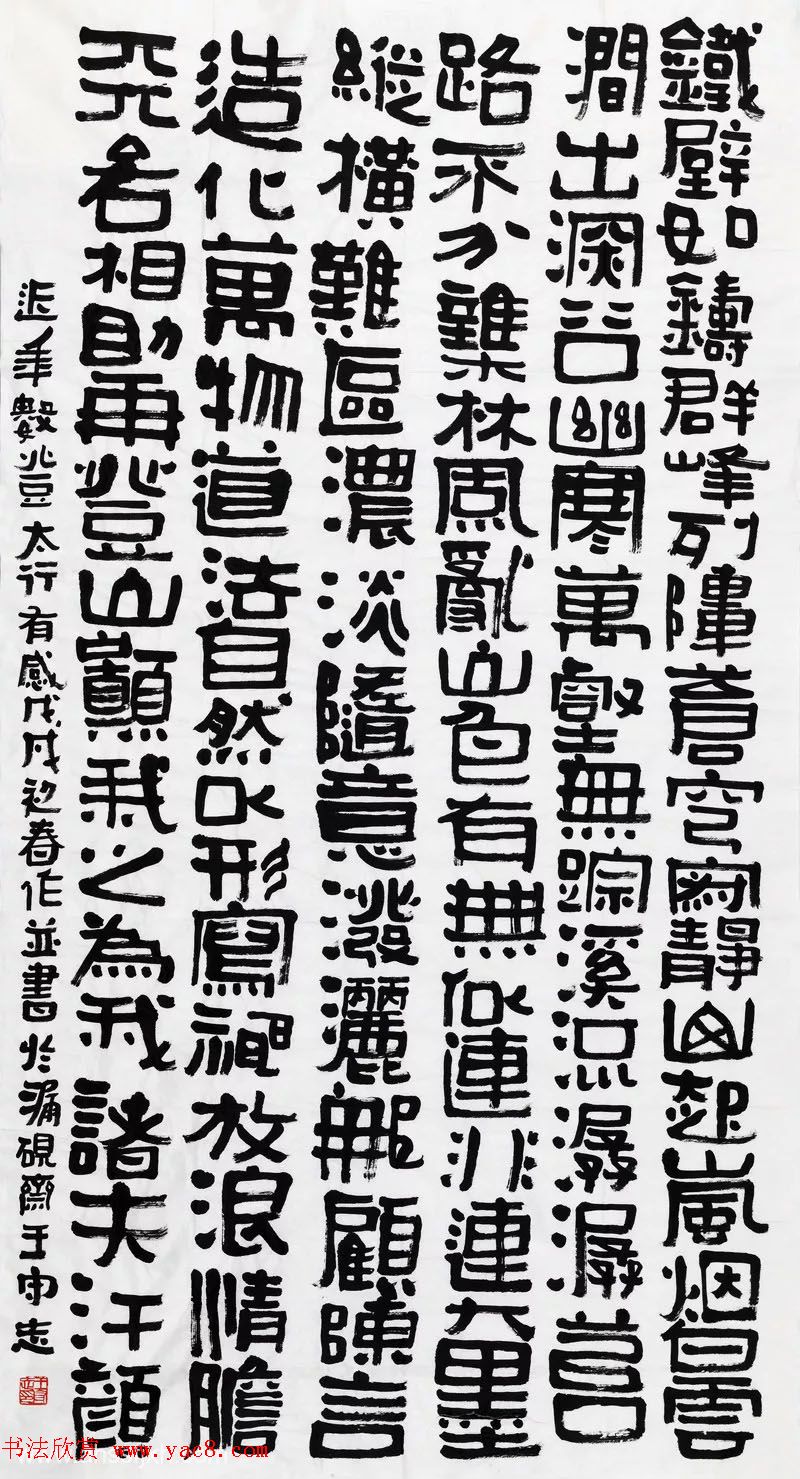 鐵壁如鑄群峰列陣蒼穹寂靜起嵐烟白雲
澗出深谷幽寒萬壑無蹤溪流潺潺
路不分雜林風亂山色有無似連非連大墨
縱橫難區濃淡隨意潑灑無顧陳言
造化萬物道法自然以形寫神放浪情膽
天若相助再登山巔我之為我諸夫汗顏
近年數登太行有感戊戌初春作並書於漏硯齋王守志
书法欣赏 www.yac8.com